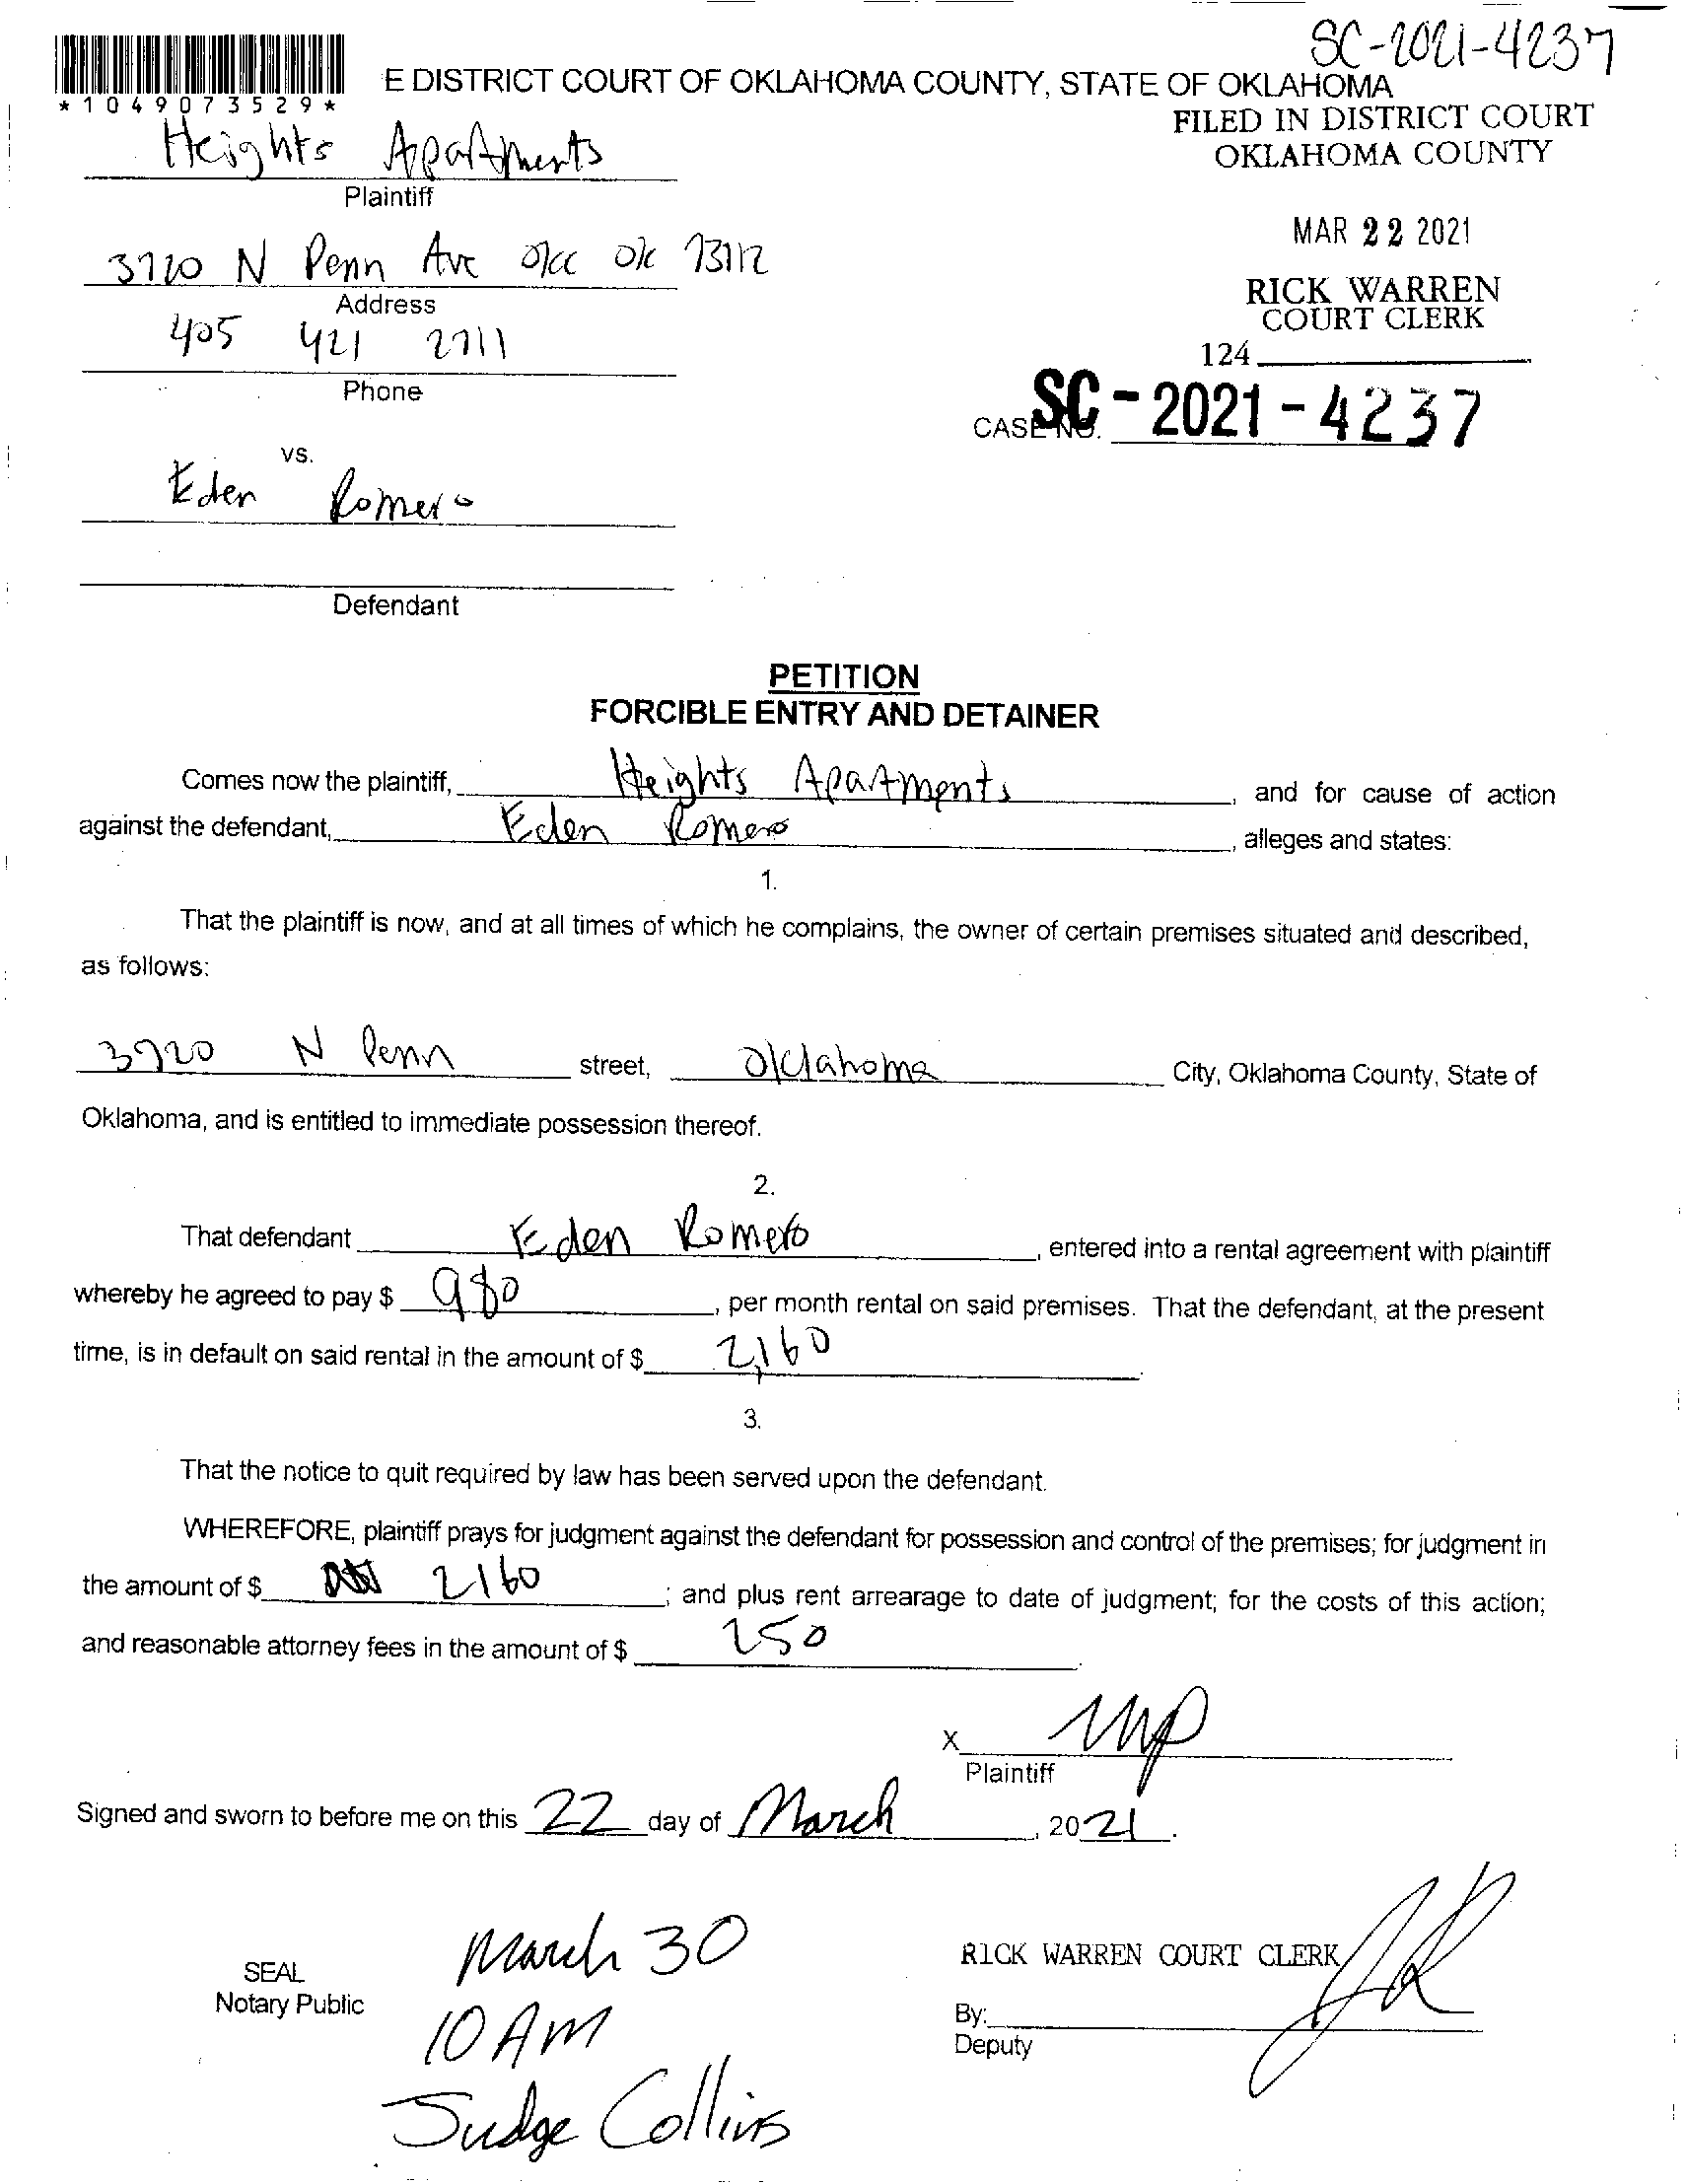 SC-2021-4237
*1049073529*
E DISTRICT COURT OF OKLAHOMA COUNTY, STATE OF OKLAHOMA
FILED IN DISTRICT COURT
OKLAHOMA COUNTY
Heights Apartments
Plaintiff
MAR 22 2021
3720 N Penn Ave okc ok 73112
Address
RICK WARREN
COURT CLERK
405 421 2711
124
Phone
CASE NO. SC-2021-4237
vs.
Eden Romero
Defendant
PETITION
FORCIBLE ENTRY AND DETAINER
Comes now the plaintiff, Heights Apartments, and for cause of action
against the defendant, Eden Romero, alleges and states:
1.
That the plaintiff is now, and at all times of which he complains, the owner of certain premises situated and described,
as follows:
3720 N Penn street, Oklahoma City, Oklahoma County, State of
Oklahoma, and is entitled to immediate possession thereof.
2.
That defendant Eden Romero, entered into a rental agreement with plaintiff
whereby he agreed to pay $ 980, per month rental on said premises. That the defendant, at the present
time, is in default on said rental in the amount of $ 2,160.
3.
That the notice to quit required by law has been served upon the defendant.
WHEREFORE, plaintiff prays for judgment against the defendant for possession and control of the premises; for judgment in
the amount of $ 2160; and plus rent arrearage to date of judgment; for the costs of this action;
and reasonable attorney fees in the amount of $ 250.
X
Plaintiff
Signed and sworn to before me on this 22 day of March, 2021.
March 30
SEAL
Notary Public
10 AM
Judge Collins
RICK WARREN COURT CLERK
By:
Deputy